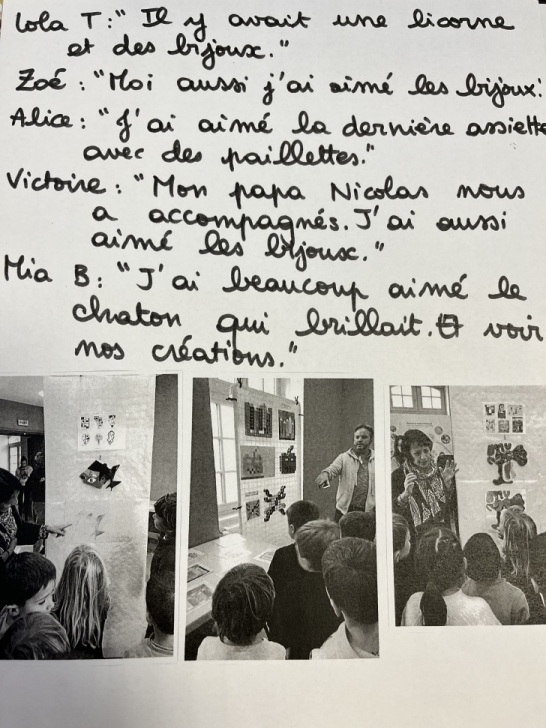 Lola T: "Il y avait une licorne
et des bijoux."
Zoé : "Moi aussi j'ai aimé les bijoux".
Alice : "J'ai aimé la dernière assiette
avec des paillettes."
Victoire : "Mon papa Nicolas nous
a accompagnés. J'ai aussi
aimé les bijoux."
Mia B: "J'ai beaucoup aimé le
chaton qui brillait. Et voir
nos créations."